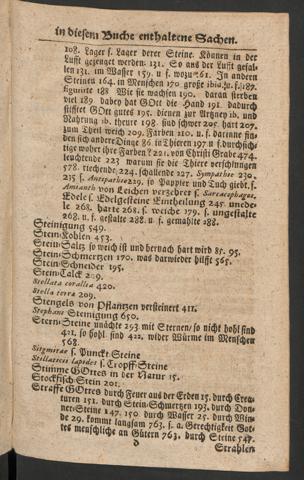 in diesem Buche enthaltene Sachen.
108. Lager s. Lager derer Steine. Können in der
Lufft gezeuget werden. 131. So aus der Lufft gefal-
len 131. im Wasser 159. u. f. 161. In andern
Steinen 164. in Menschen 170 große ibid. 187.
figuirte 188 Wie sie wachsen 190. daran sterben
viel 189 dabey hat GOtt die Hand 191. dadurch
stifftet GOtt gutes 195. dienen zur Artzney ib. und
Nahrung ib. theure 198. sind schwer 205. hart 207.
zum Theil weich 209. Farben 210. u. f. darinne fin-
den sich andere Dinge 86 in Thieren 197 u. f. durchsich-
tige woher ihre Farben? 221. von Christi Grabe 474.
leuchtende 223 warum sie die Thiere verschlingen
578. riechende 224. schallende 227. Sympathie 230.
235 s. Antipathie 229. so Pappier und Tuch giebt. s.
Amianth von Leichen verzehret s. Sarcophagus.
Edele s. Edelgesteine Eintheilung 245. unede-
le 268. harte 268. s. weiche 179. s. ungestalte
268. u. f. gestalte 288. u. f. gemahlte 288.
Steinigung 549.
Stein-Kohlen 453.
Stein-Saltz so weich ist und hernach hart wird 85. 95.
Stein-Schmertzen 170. was darwieder hilfft 565.
Stein-Schneider 195.
Stein-Talck 209.
Stellata corallia 420.
Stella terra 209.
Stengels von Pflantzen versteinert 411.
Stephani Steinigung 650.
Stern-Steine unächte 293 mit Sternen/ so nicht hohl sind
421. so hohl sind 422. wider Würme im Menschen
568.
Stigmitae s. Punckt-Steine
Stillatitii lapides s. Tropff-Steine
Stimme GOttes in der Natur 15.
Stockfisch Stein 201.
Straffe GOttes durch Feuer aus der Erden 15. durch Crea-
turen 151. durch Stein-Schmertzen 193. durch Don-
ner-Steine 147. 150 durch Wasser 25. durch Win-
de 29. kommt langsam 763. s. a. Gerechtigkeit Got-
tes menschliche an Gütern 763. durch Steine 547.
Strahlen